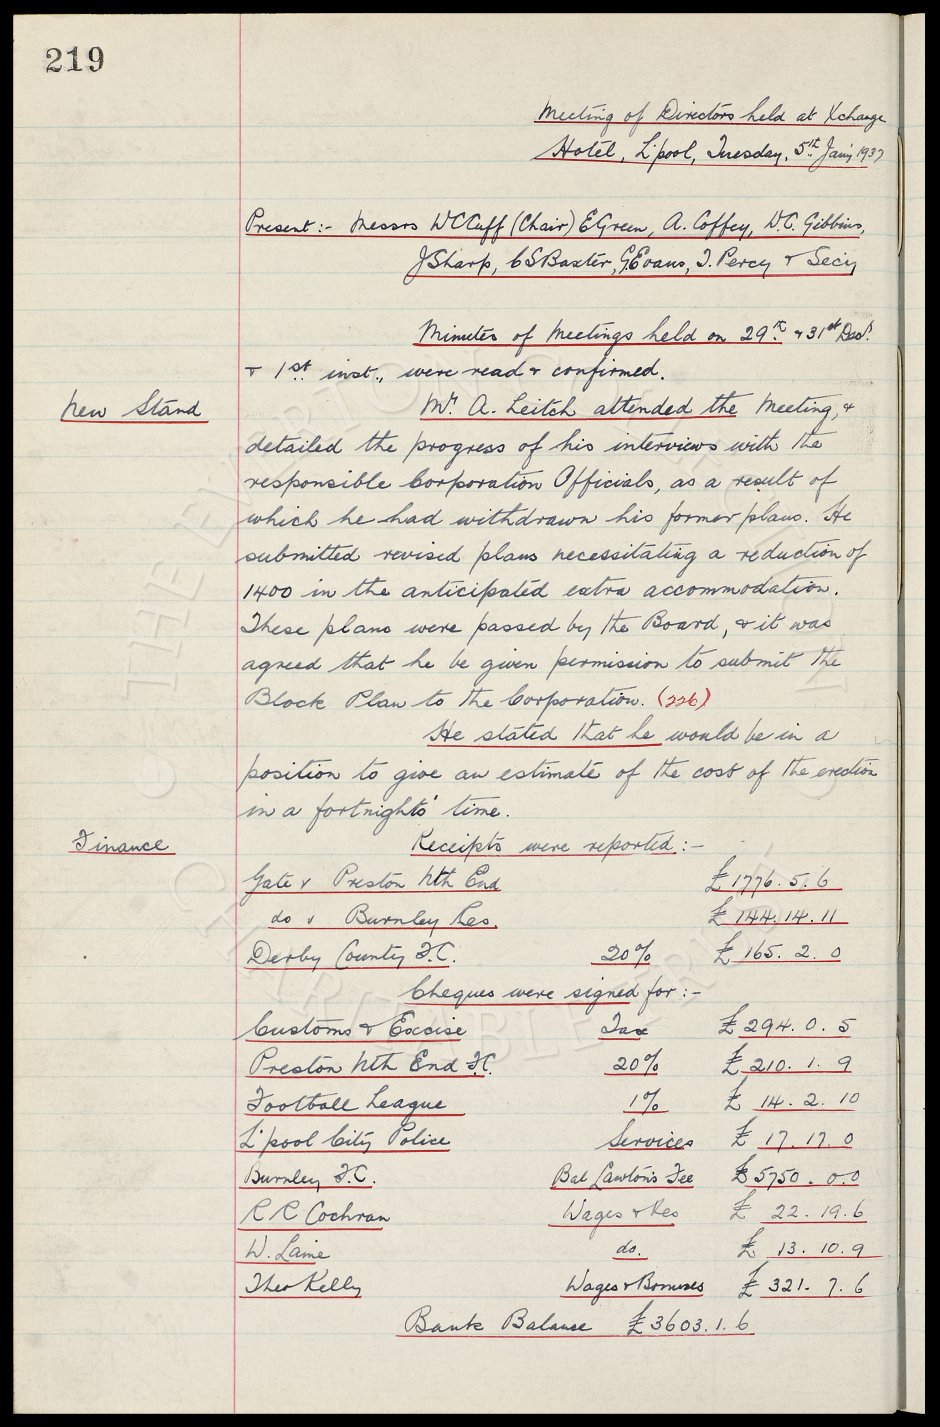 219
Meeting of Directors held at Xchange
Hotel, L'pool, Tuesday, 5th Jan'y 1937
Present:- Messrs W C Cuff (Chair) E Green, A. Coffey, W. C. Gibbins,
J Sharp, C S Baxter, G. Evans, T. Percy & Sec'y
Minutes of Meetings held on 29th & 31st Dec'r
& 1st inst., were read & confirmed.
New Stand
Mr. A. Leitch attended the Meeting, &
detailed the progress of his interviews with the
responsible Corporation Officials, as a result of
which he had withdrawn his former plans. He
submitted revised plans necessitating a reduction of
1400 in the anticipated extra accommodation.
These plans were passed by the Board, & it was
agreed that he be given permission to submit the
Block Plan to the Corporation. (226)
He stated that he would be in a
position to give an estimate of the cost of the erection
in a fortnights' time.
Finance
Receipts were reported:-
Gate v Preston Nth End £1776. 5. 6
do v Burnley Res. £144. 14. 11
Derby County F.C. 20% £165. 2. 0
Cheques were signed for:-
Customs & Excise Tax £294. 0. 5
Preston Nth End F.C. 20% £210. 1. 9
Football League 1% £ 14. 2. 10
L'pool City Police Services £ 17. 17. 0
Burnley F.C. Bal Lawton's Fee £5750. 0. 0
R R Cochran Wages & Res £ 22. 19. 6
W. Laine do. £ 13. 10. 9
Theo Kelly Wages & Bonuses £ 321. 7. 6
Bank Balance £3603. 1. 6
THE EVERTON COLLECTION
CHARITABLE TRUST